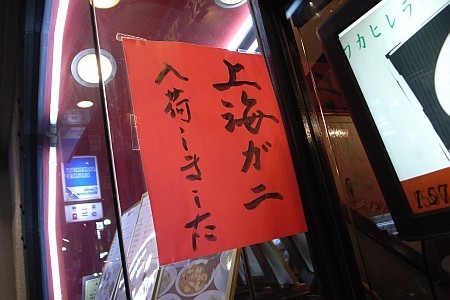 上海ガニ
入荷しました
フカヒレラ
1,57